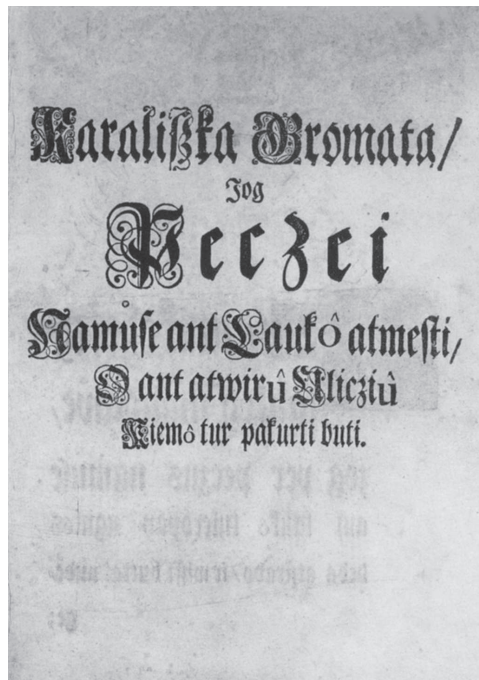 Karalißka Gromata/
Jog
Peczei
Namůſe ant Laukô atmeſti/
O ant atwirû Ulicziû
Kiemô tur pakurti buti.